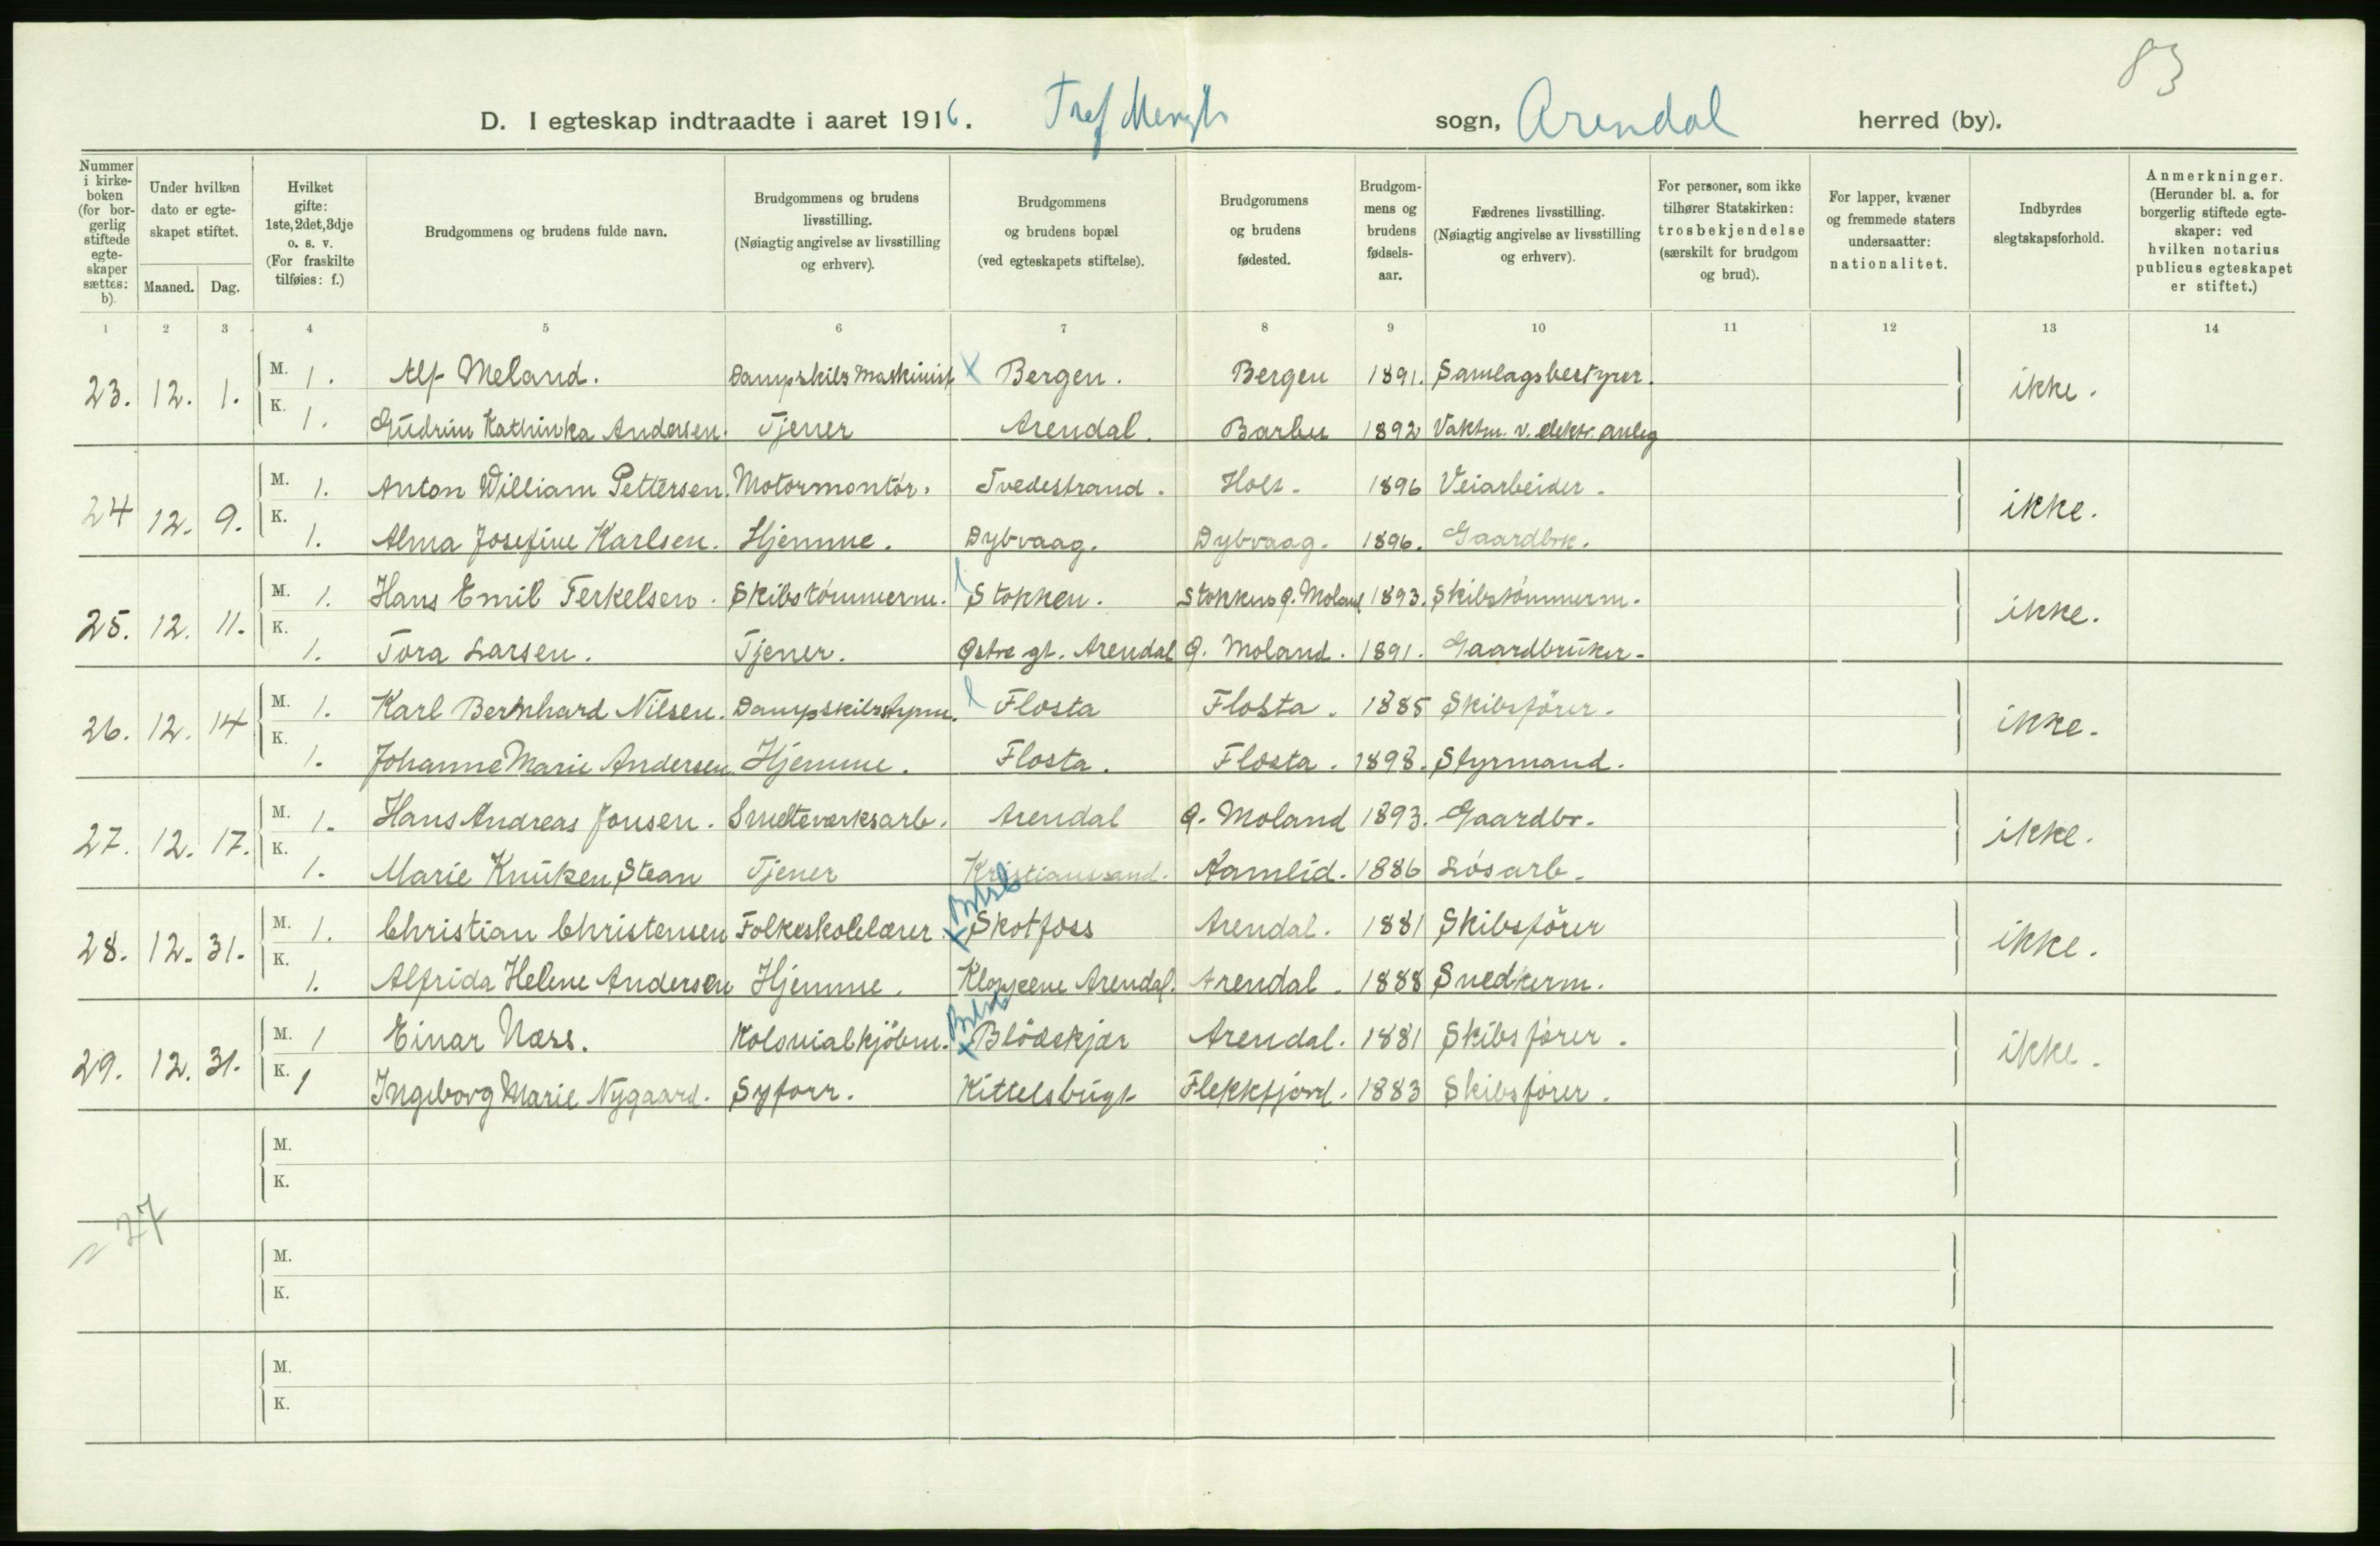 83
D. I egteskap indtraadte i aaret 1916. sogn, Arendal herred (by).
Nummer i kirkeboken (for borgerlig stiftede egteskaper sættes: b).
Under hvilken dato er egteskapet stiftet.
Maaned. Dag.
Hvilket gifte: 1ste, 2det, 3dje o. s. v. (For fraskilte tilføies: f.)
Brudgommens og brudens fulde navn.
Brudgommens og brudens livsstilling. (Nøiagtig angivelse av livsstilling og erhverv).
Brudgommens og brudens bopæl (ved egteskapets stiftelse).
Brudgommens og brudens fødested.
Brudgommens og brudens fødselsaar.
Fædrenes livsstilling. (Nøiagtig angivelse av livsstilling og erhverv).
For personer, som ikke tilhører Statskirken: trosbekjendelse (særskilt for brudgom og brud).
For lapper, kvæner og fremmede staters undersaatter: nationalitet.
Indbyrdes slegtskapsforhold.
Anmerkninger. (Herunder bl. a. for borgerlig stiftede egteskaper: ved hvilken notarius publicus egteskapet er stiftet.)
1 2 3 4 5 6 7 8 9 10 11 12 13 14
23. 12. 1. M. 1. Alf Meland. Dampskibs Maskinist X Bergen. Bergen 1891. Samlagsbestyrer. ikke.
K. 1. Gudrun Kathinka Andersen. Tjener Arendal. Barbu 1892 Vaktm. v. elektr. anleg
24 12. 9. M. 1. Anton William Pettersen. Motormontör. Tvedestrand. Holt. 1896 Veiarbeider. ikke.
K. 1. Alma Josefine Karlsen. Hjemme. Dybvaag. Dybvaag. 1896. Gaardbrk.
25. 12. 11. M. 1. Hans Emil Terkelsen. Skibstömmerm. Stokken. Stokken Ø. Moland 1893. Skibstömmerm. ikke.
K. 1. Tora Larsen. Tjener. Østre gt. Arendal Ø. Moland. 1891. Gaardbruker.
26. 12. 14 M. 1. Karl Bernhard Nilsen. Dampskibsstyrm. Flosta Flosta. 1885 Skibsförer. ikke.
K. 1. Johanne Marie Andersen Hjemme. Flosta. Flosta. 1898. Styrmand.
27. 12. 17. M. 1. Hans Andreas Jonsen. Smelteverksarb. Arendal Ø. Moland 1893. Gaardbr. ikke.
K. 1. Marie Knutsen Stean Tjener Kristianssand. Aamlid. 1886 Lösarb.
28. 12. 31. M. 1. Christian Christensen Folkeskolelærer. X Skotfoss Arendal. 1881 Skibsförer ikke.
K. 1. Alfrida Helene Andersen Hjemme. Klöckene Arendal. Arendal. 1888 Snedkerm.
29. 12. 31. M. 1 Einar Næss. Kolonialkjöbm. X Blödekjær Arendal. 1881 Skibsförer. ikke.
K. 1 Ingeborg Marie Nygaard. Syforr. Kittelsbugt Flekkfjord. 1883 Skibsförer.
M.
K.
= 27
M.
K.
M.
K.